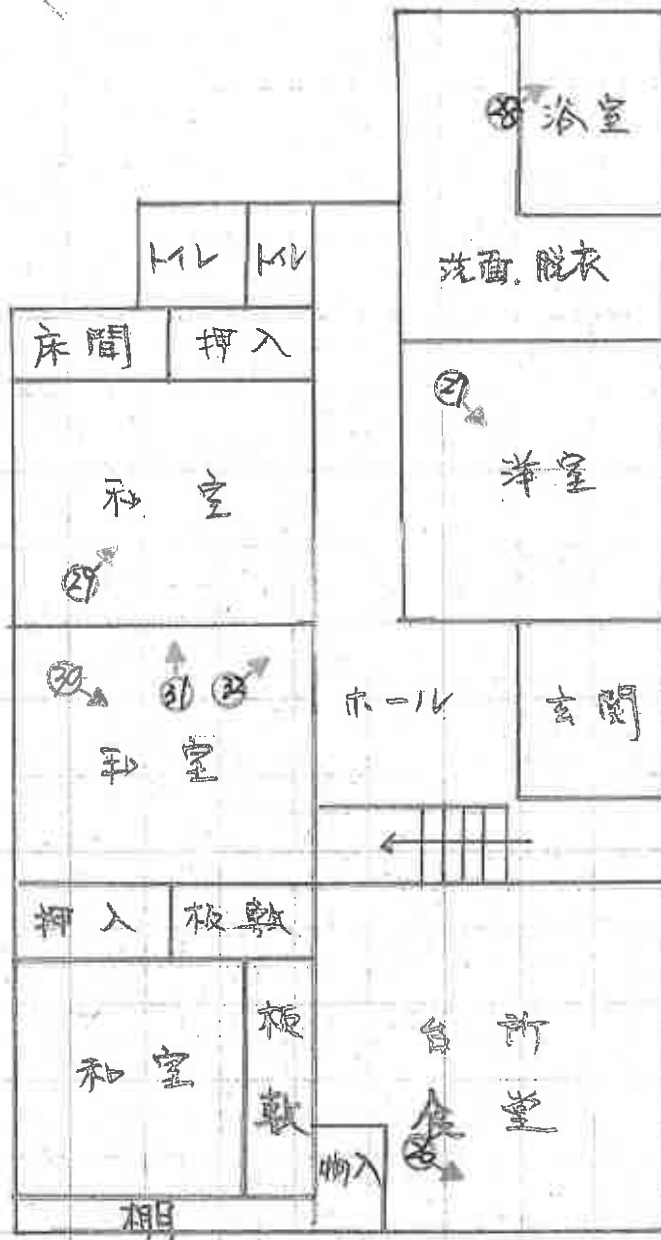 ㉘ 浴室
トイレ トイレ
洗面.脱衣
床間 押入
㉗
洋室
和室
㉙
㉚ ㉛ ㉜
ホール 玄関
和室
押入 板敷
板敷
台所
食堂
和室
㉖
物入
棚